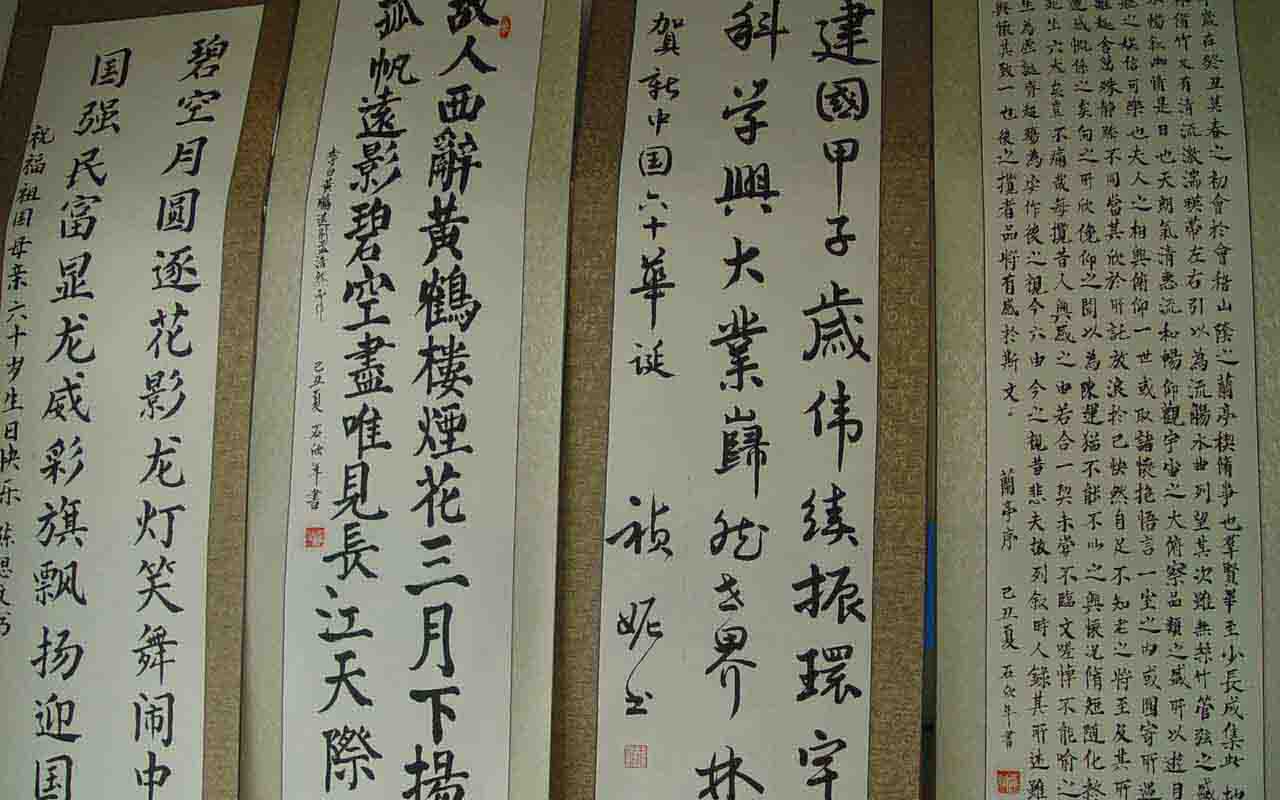 歲在癸丑莫春之初會於會稽山陰之蘭亭稧脩事也羣賢畢至少長咸集此
脩竹又有清流激湍暎帶左右引以為流觴水曲列望其次雖無絲竹管弦之盛
暢叙幽情是日也天朗氣清惠流和暢仰觀宇宙之大俯察品類之盛所以遊目
之娛信可樂也夫人之相與俯仰一世或取諸懷抱悟言一室之內或因寄所遇
雖趣舍萬殊靜躁不同當其欣於所託放浪於己快然自足不知老之將至及其所
遷感慨係之矣向之所欣俛仰之間以為陳迹猶不能不以之興懷况脩短隨化終
死生六大矣豈不痛哉每攬昔人興感之由若合一契未尝不臨文嗟悼不能喻之
生為虛誕齊彭殤為妄作後之視今六由今之視昔悲夫故列叙時人錄其所述雖
與懷其致一也後之攬者品將有感於斯文。 蘭亭序 己丑夏 石 年書
建國甲子歲伟績振環宇
科学興大業歸然世界林
贺新中国六十華诞
禎妮书
故人西辭黃鶴樓煙花三月下揚
孤帆遠影碧空盡唯見長江天際
李白黃鶴 己丑夏 石 年書
碧空月圆逐花影龙灯笑舞闹中
国强民富显龙威彩旗飘扬迎国
祝福祖国母亲六十岁生日快乐 陈思文书